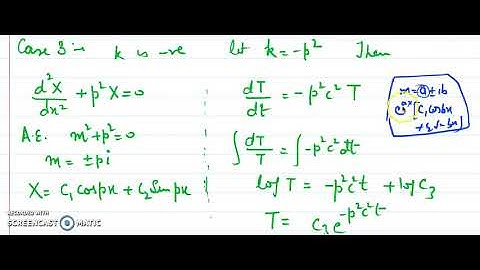 Case 3 :- k is -ve let k = -p² Then
d²X/dx² + p²X = 0
A.E. m² + p² = 0
m = ± p i
X = C₁ cospx + C₂ Sinpx
dT/dt = -p²c² T
∫ dT/T = ∫ -p²c² dt
log T = -p²c²t + log C₃
T = C₃ e^{-p²c²t}
m = a ± ib
e^{ax} [C₁ cosbx
+ C₂ sin bx]
RECORDED WITH
SCREENCAST MATIC